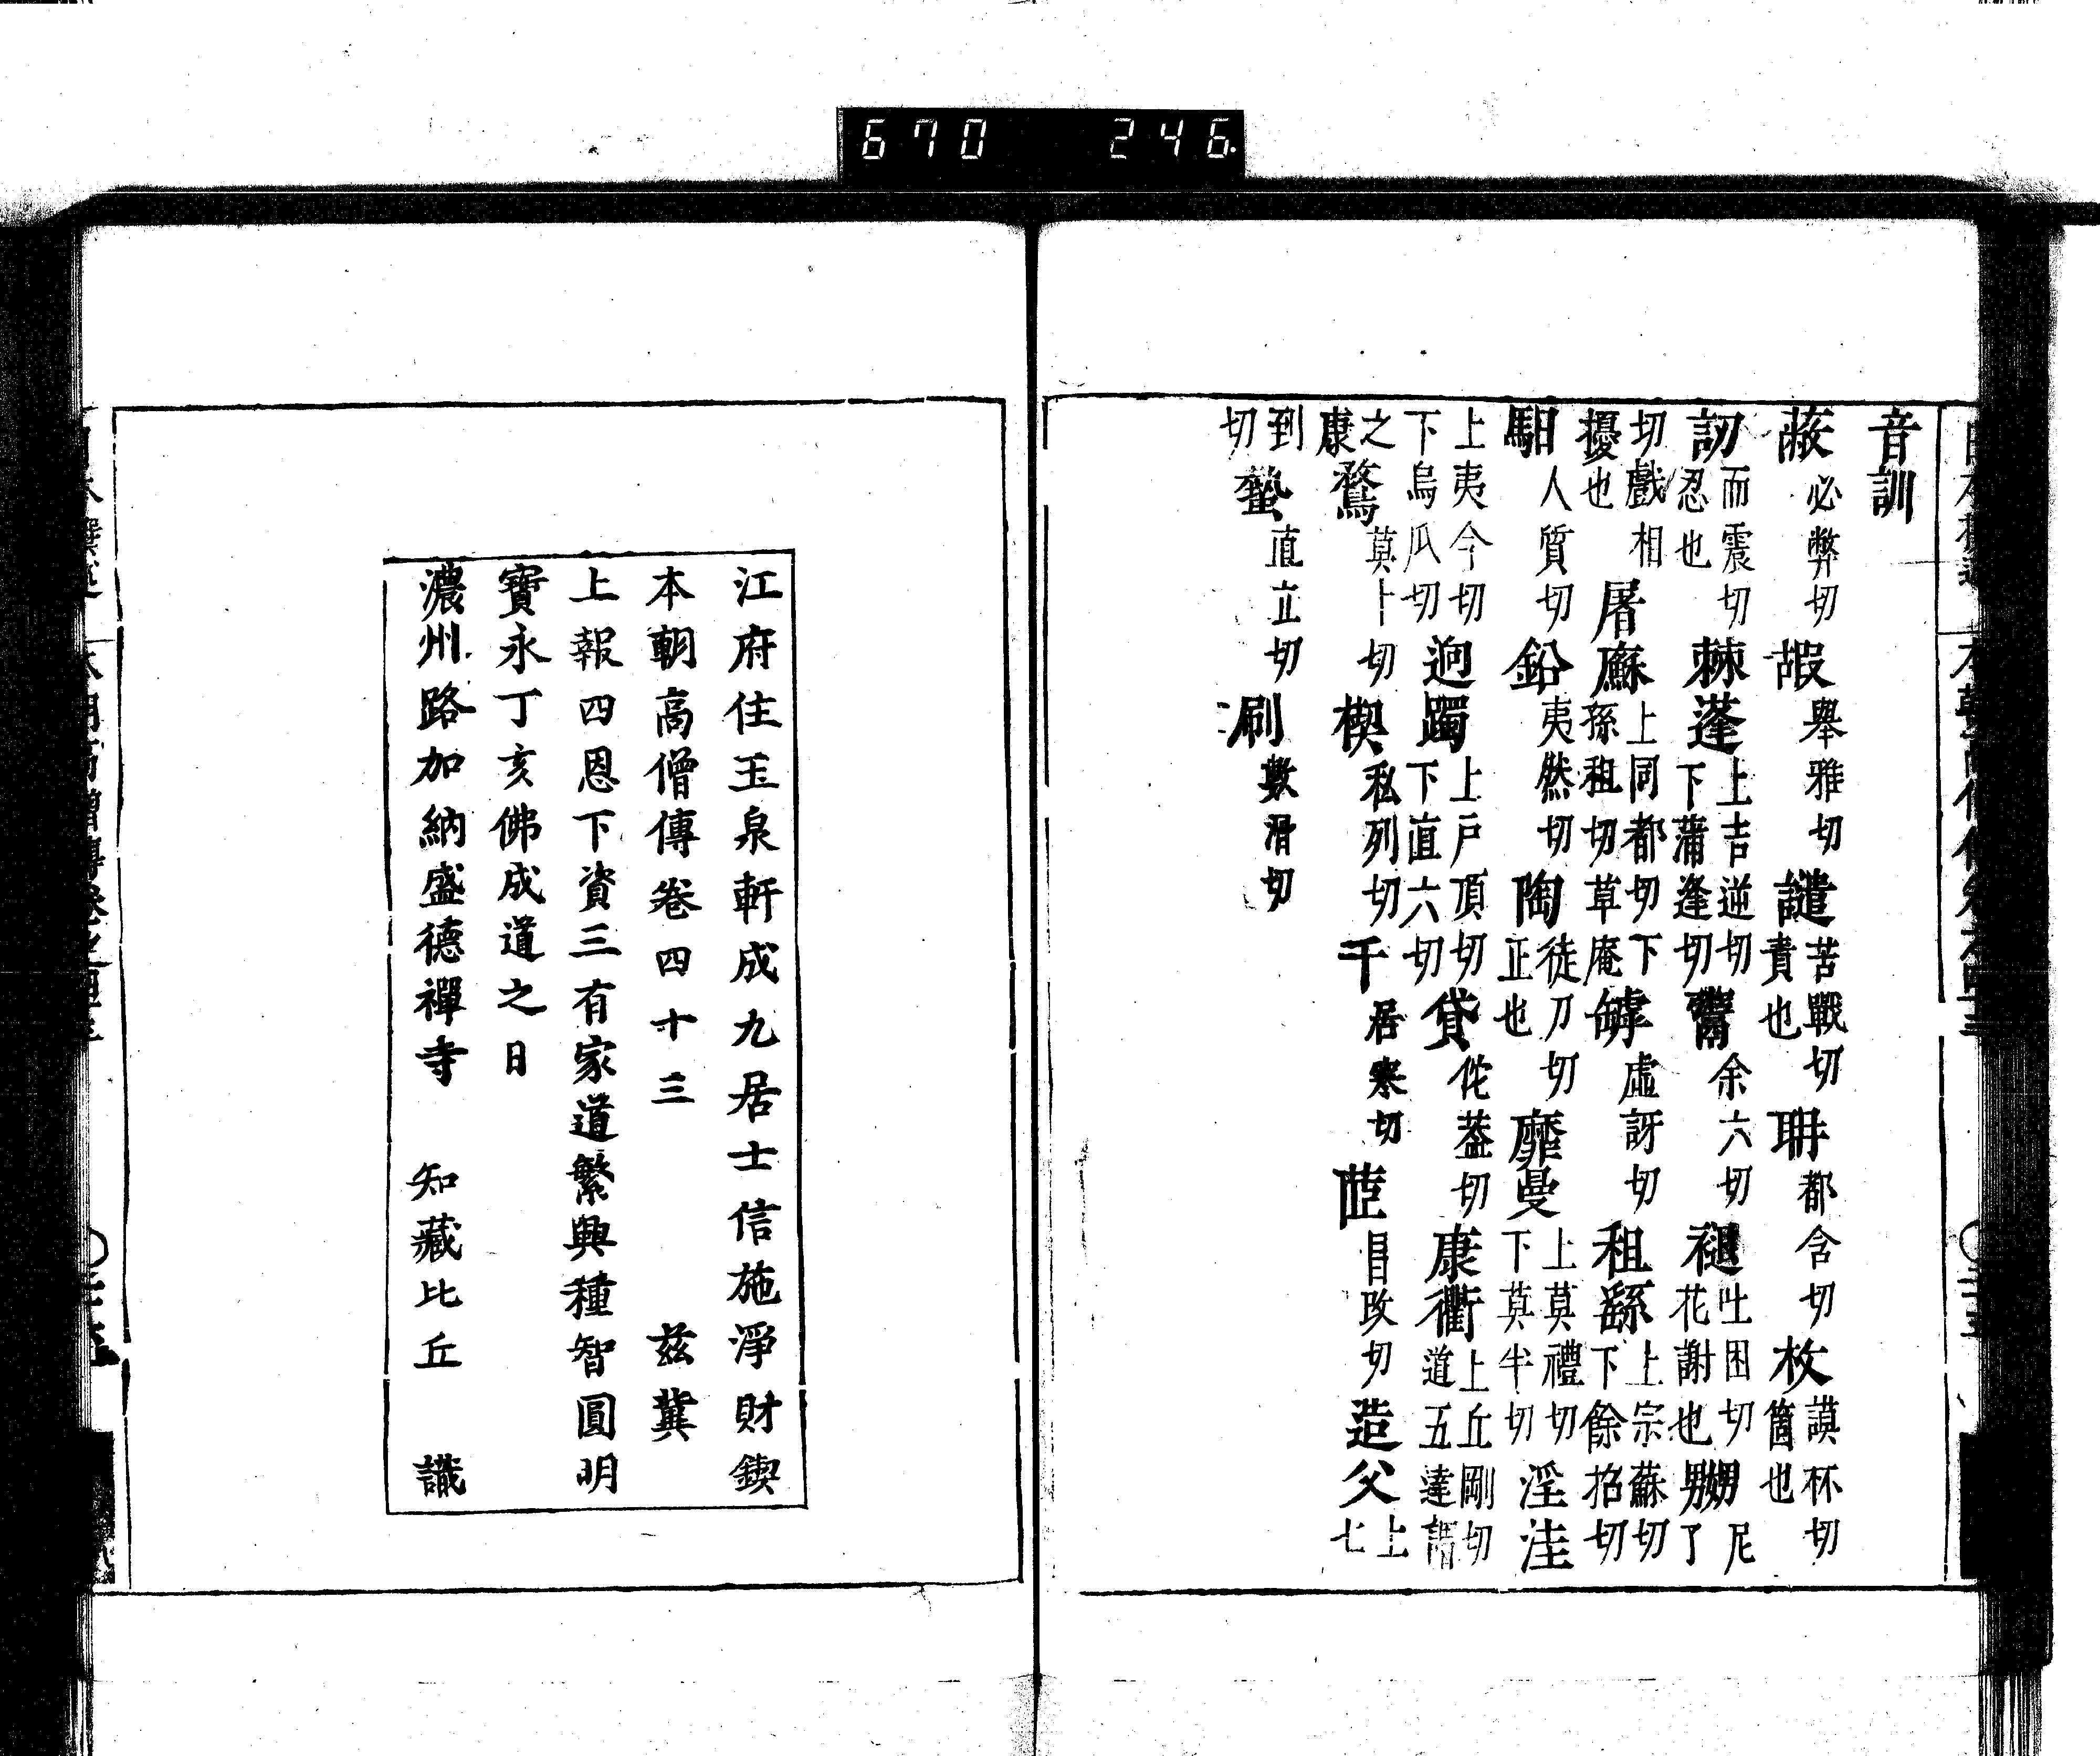 670 246
音訓
蔽必弊切 嘏舉雅切 譴苦戰切責也 耼都含切 枚謨杯切箇也
訒而震切忍也 棘蓬上吉逆切下蒲逢切 鬻余六切 褪吐困切花謝也 嬲尼了
切戲相擾也 屠廡上同都切下孫租切草庵 罅虛訝切 租繇上宗蘇切下餘招切
馹人質切 鉛夷然切 陶徒刀切正也 靡曼上莫禮切下莫半切 淫洼
上夷今切下烏瓜切 迥躅上戶頂切下直六切 貸佗蓋切 康衢上丘剛切道五達謂
之康 鶩莫卜切 楔私列切 干居寒切 茁目改切 造父上七
到切 蟄直立切 刷數滑切
江府住玉泉軒成九居士信施淨財鍥
本朝高僧傳卷四十三 茲冀
上報四恩下資三有家道繁興種智圓明
寶永丁亥佛成道之日
濃州路加納盛德禪寺 知藏比丘 識